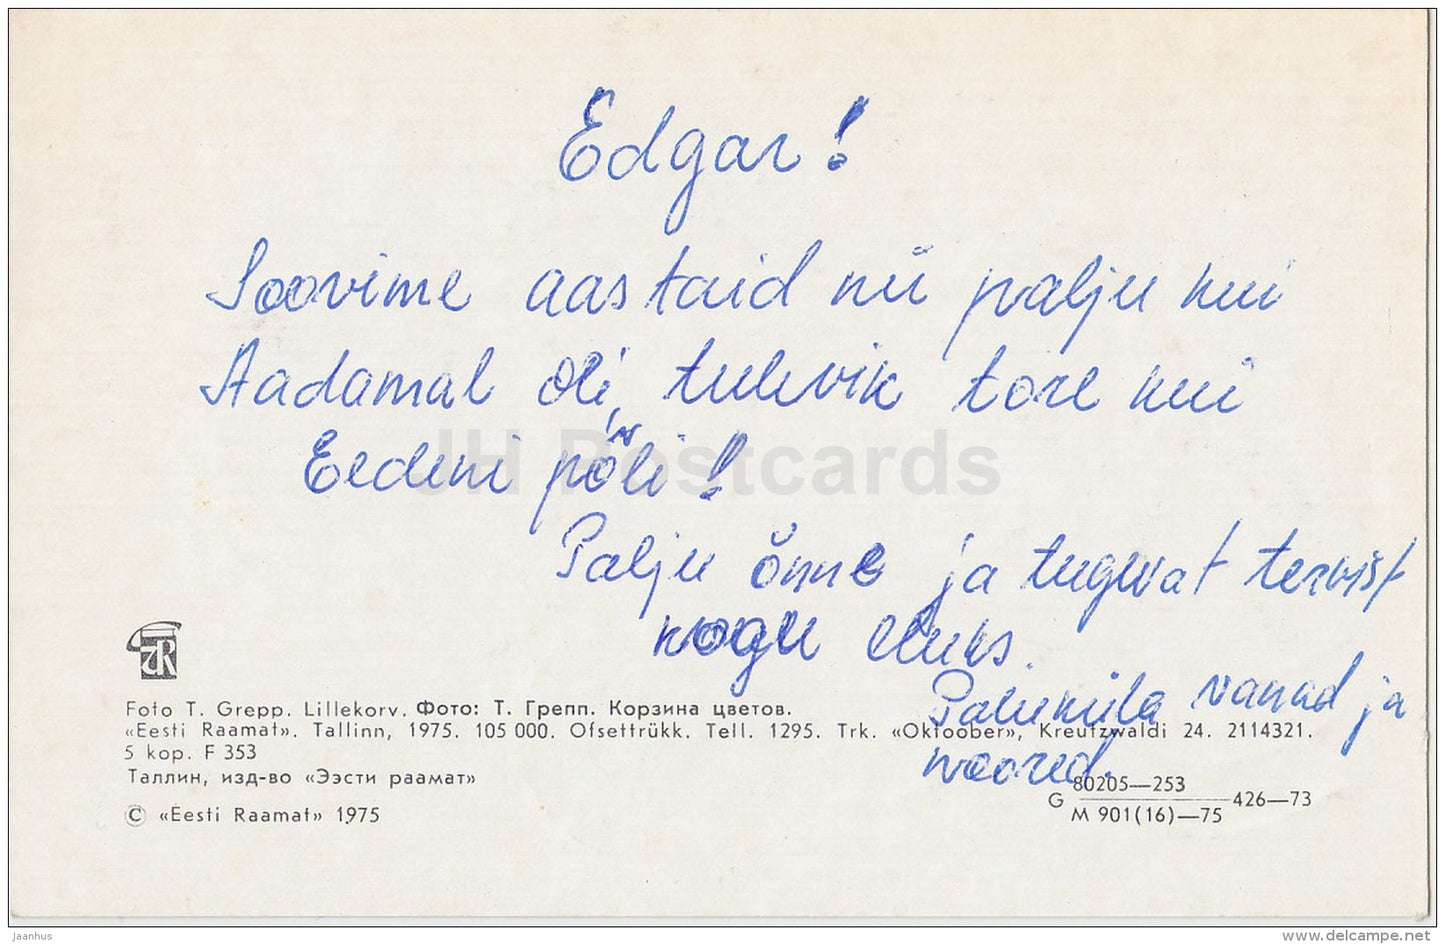 Edgar!
Soovime aastaid nii palju kui
Aadamal oli, tulevik tore kui
Eedeni põli!
Palju õnne ja tugevat tervist
kogu eluks.
Paluküla vanad ja
noored.
Foto T. Grepp. Lillekorv. Фото: Т. Грепп. Корзина цветов.
«Eesti Raamat». Tallinn, 1975. 105 000. Ofsettrükk. Tell. 1295. Trk. «Oktoober», Kreutzwaldi 24. 2114321.
5 kop. F 353
Таллин, изд-во «Ээсти раамат»
© «Eesti Raamat» 1975
G 80205—253 / M 901(16)—75 426—73
JH Postcards
jaanhus
www.delcampe.net